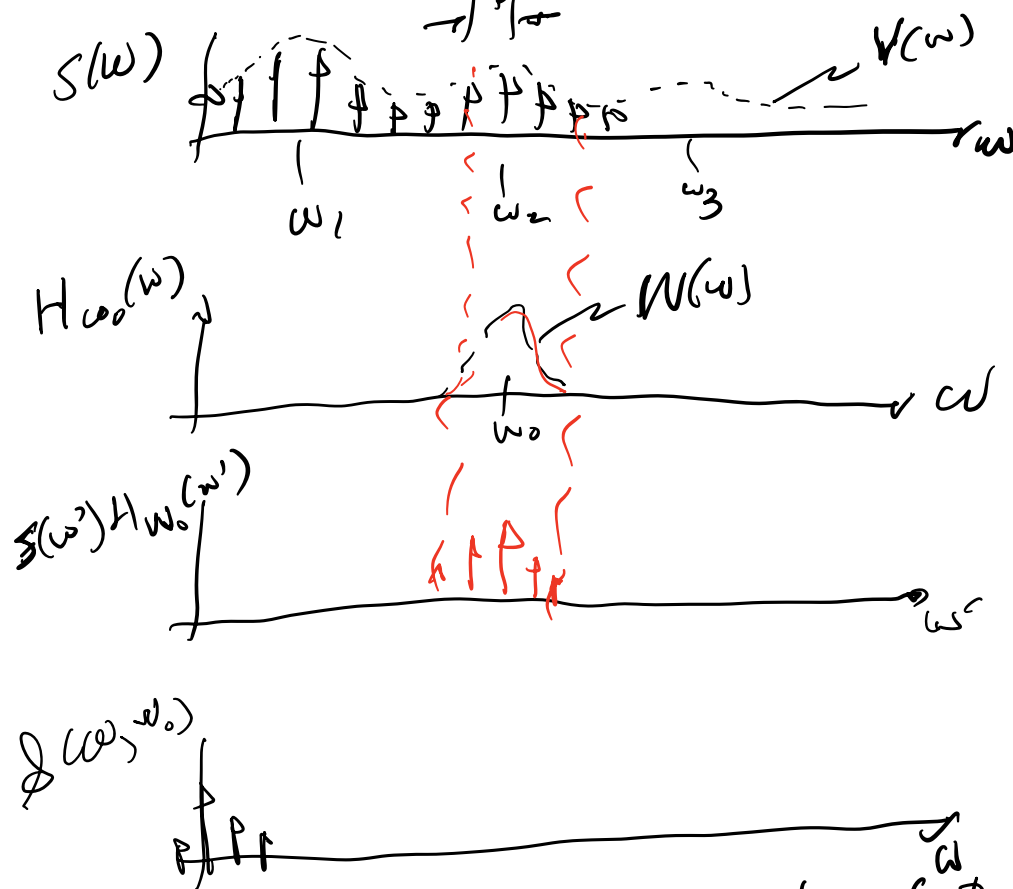 S(ω)
V(ω)
ω
ω1
ω2
ω3
Hω0(ω)
W(ω)
ω
ω0
S(ω')Hω0(ω')
ω'
S(ω, ω0)
ω